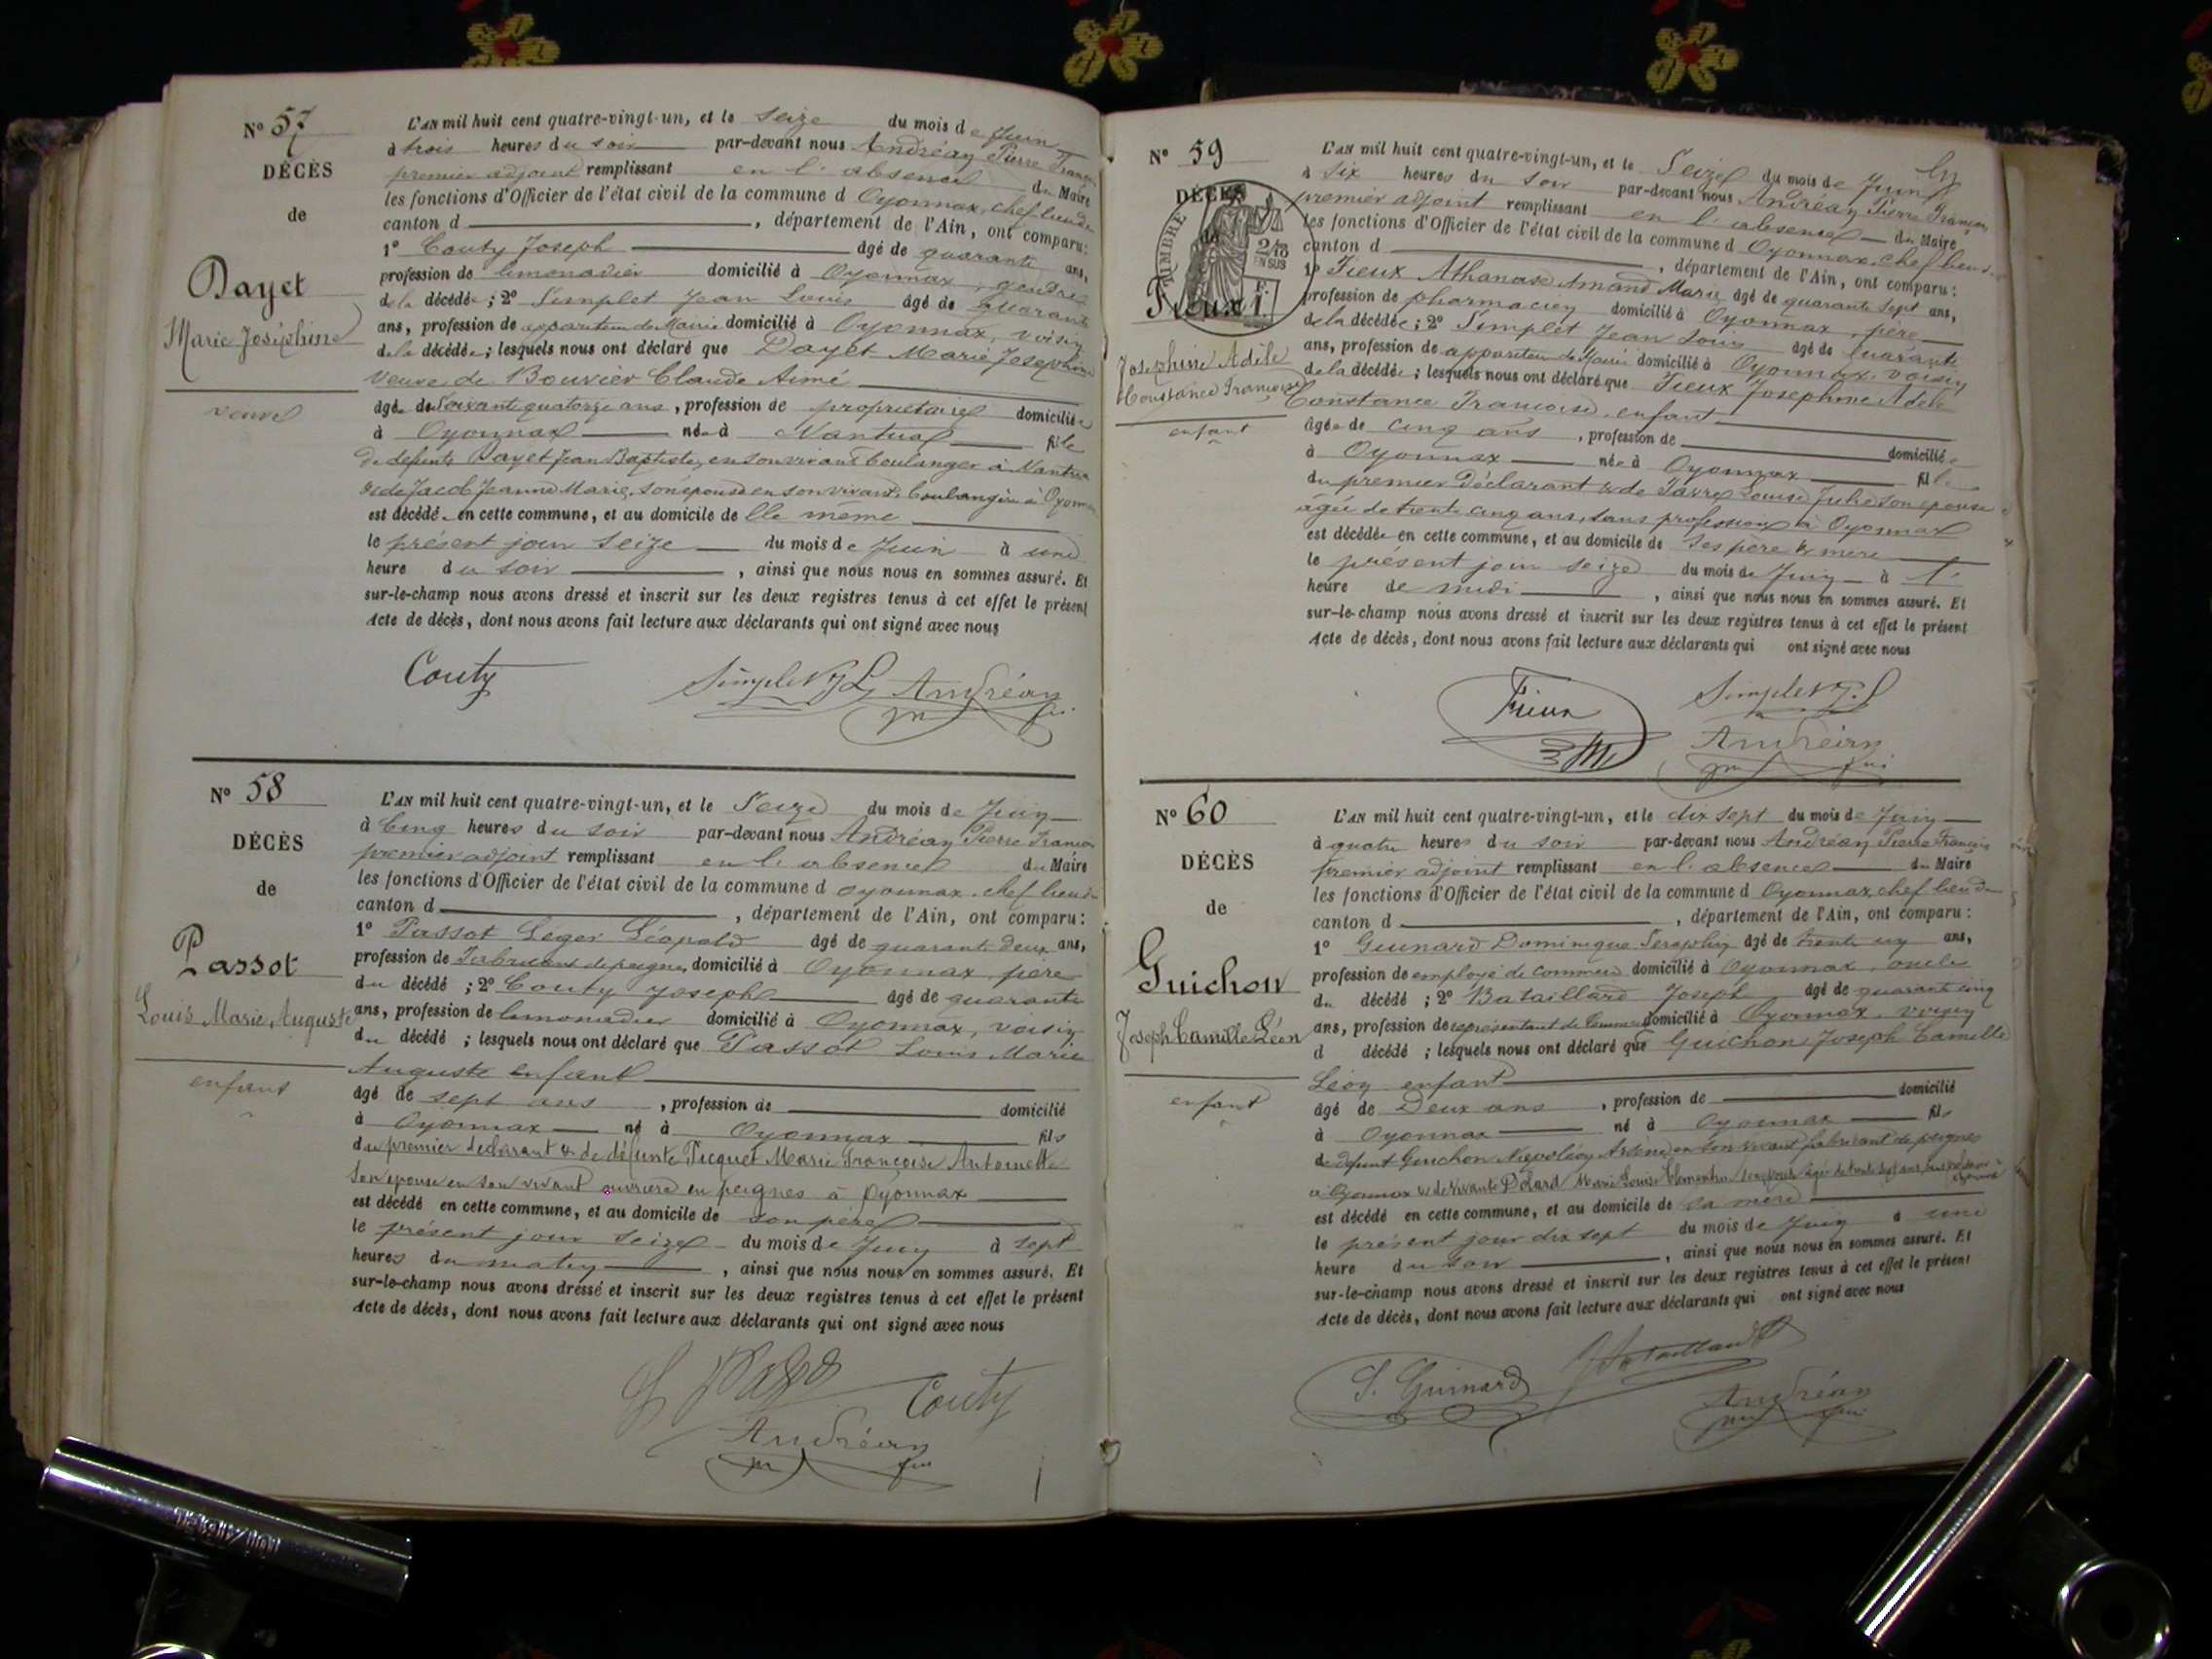 N° 57
DÉCÈS
de
Dayet
Marie Joséphine
veuve
L'AN mil huit cent quatre-vingt-un, et le seize du mois de Juin
à trois heures du soir par-devant nous Andréan Pierre François
premier adjoint remplissant en l'absence du Maire
les fonctions d'Officier de l'état civil de la commune d Oyonnax, chef lieu de
canton d , département de l'Ain, ont comparu:
1° Couty Joseph âgé de quarante ans,
profession de limonadier domicilié à Oyonnax, gendre
de la décédée ; 2° Simplet Jean Louis âgé de quarante
ans, profession de appariteur de Mairie domicilié à Oyonnax, voisin
de la décédée ; lesquels nous ont déclaré que Dayet Marie Josephine
veuve de Bouvier Claude Aimé
âgée de Soixante quatorze ans, profession de propriétaire domiciliée
à Oyonnax née à Nantua fille
de defunts Dayet Jean Baptiste, en son vivant boulanger à Nantua
& de Jacob Jeanne Marie, son épouse en son vivant boulangère à Oyonnax
est décédée en cette commune, et au domicile de elle même
le présent jour seize du mois de Juin à une
heure du soir , ainsi que nous nous en sommes assuré. Et
sur-le-champ nous avons dressé et inscrit sur les deux registres tenus à cet effet le présent
Acte de décès, dont nous avons fait lecture aux déclarants qui ont signé avec nous
Couty Simplet J L Andréan
N° 58
DÉCÈS
de
Passot
Louis Marie Auguste
enfant
L'AN mil huit cent quatre-vingt-un, et le Seize du mois de Juin
à Cinq heures du soir par-devant nous Andréan Pierre François
premier adjoint remplissant en l'absence du Maire
les fonctions d'Officier de l'état civil de la commune d oyonnax, chef lieu de
canton d , département de l'Ain, ont comparu:
1° Passot Léger Léopold âgé de quarante deux ans,
profession de Fabricant de peignes domicilié à Oyonnax, père
du décédé ; 2° Couty Joseph âgé de quarante
ans, profession de limonadier domicilié à Oyonnax, voisin
du décédé ; lesquels nous ont déclaré que Passot Louis Marie
Auguste enfant
âgé de sept ans , profession de domicilié
à Oyonnax né à Oyonnax fils
du premier declarant & de défunte Picquet Marie Françoise Antoinette
son épouse en son vivant ouvrière en peignes à Oyonnax
est décédé en cette commune, et au domicile de son père
le présent jour seize du mois de Juin à sept
heures du matin , ainsi que nous nous en sommes assuré. Et
sur-le-champ nous avons dressé et inscrit sur les deux registres tenus à cet effet le présent
Acte de décès, dont nous avons fait lecture aux déclarants qui ont signé avec nous
Couty
Andréan
N° 59
DÉCÈS
TIMBRE
2/10
EN SUS
Fieux
Josephine Adèle
Constance Françoise
enfant
L'AN mil huit cent quatre-vingt-un, et le Seize du mois de Juin
à Six heures du soir par-devant nous Andréan Pierre François
premier adjoint remplissant en l'absence du Maire
les fonctions d'Officier de l'état civil de la commune d Oyonnax, chef lieu de
canton d , département de l'Ain, ont comparu:
1° Fieux Athanase Amand Marie âgé de quarante sept ans,
profession de pharmacien domicilié à Oyonnax, père
de la décédée ; 2° Simplet Jean Louis âgé de quarante
ans, profession de appariteur de Mairie domicilié à Oyonnax, voisin
de la décédée ; lesquels nous ont déclaré que Fieux Josephine Adele
Constance Françoise, enfant
âgée de cinq ans , profession de domiciliée
à Oyonnax née à Oyonnax fille
du premier déclarant & de Louise Julie son épouse
âgée de trente cinq ans, sans profession à Oyonnax
est décédée en cette commune, et au domicile de ses père & mère
le présent jour seize du mois de Juin à l'
heure de midi , ainsi que nous nous en sommes assuré. Et
sur-le-champ nous avons dressé et inscrit sur les deux registres tenus à cet effet le présent
Acte de décès, dont nous avons fait lecture aux déclarants qui ont signé avec nous
Fieux Simplet J. L
Andréan
N° 60
DÉCÈS
de
Guichon
Joseph Camille Léon
enfant
L'AN mil huit cent quatre-vingt-un, et le dix sept du mois de Juin
à quatre heures du soir par-devant nous Andréan Pierre François
premier adjoint remplissant en l'absence du Maire
les fonctions d'Officier de l'état civil de la commune d Oyonnax, chef lieu de
canton d , département de l'Ain, ont comparu:
1° Guinard Dominique Seraphin âgé de trente un ans,
profession de employé de commerce domicilié à Oyonnax, oncle
du décédé ; 2° Bataillard Joseph âgé de quarante cinq
ans, profession de représentant de Commerce domicilié à Oyonnax, voisin
d décédé ; lesquels nous ont déclaré que Guichon Joseph Camille
Léon enfant
âgé de Deux ans , profession de domicilié
à Oyonnax né à Oyonnax fils
de défunt Guichon Arsène en son vivant fabricant de peignes
à Oyonnax & de vivante Marie Louise Clementine
est décédé en cette commune, et au domicile de sa mère
le présent jour dix sept du mois de Juin à une
heure du soir , ainsi que nous nous en sommes assuré. Et
sur-le-champ nous avons dressé et inscrit sur les deux registres tenus à cet effet le présent
Acte de décès, dont nous avons fait lecture aux déclarants qui ont signé avec nous
S. Guinard Bataillard
Andréan